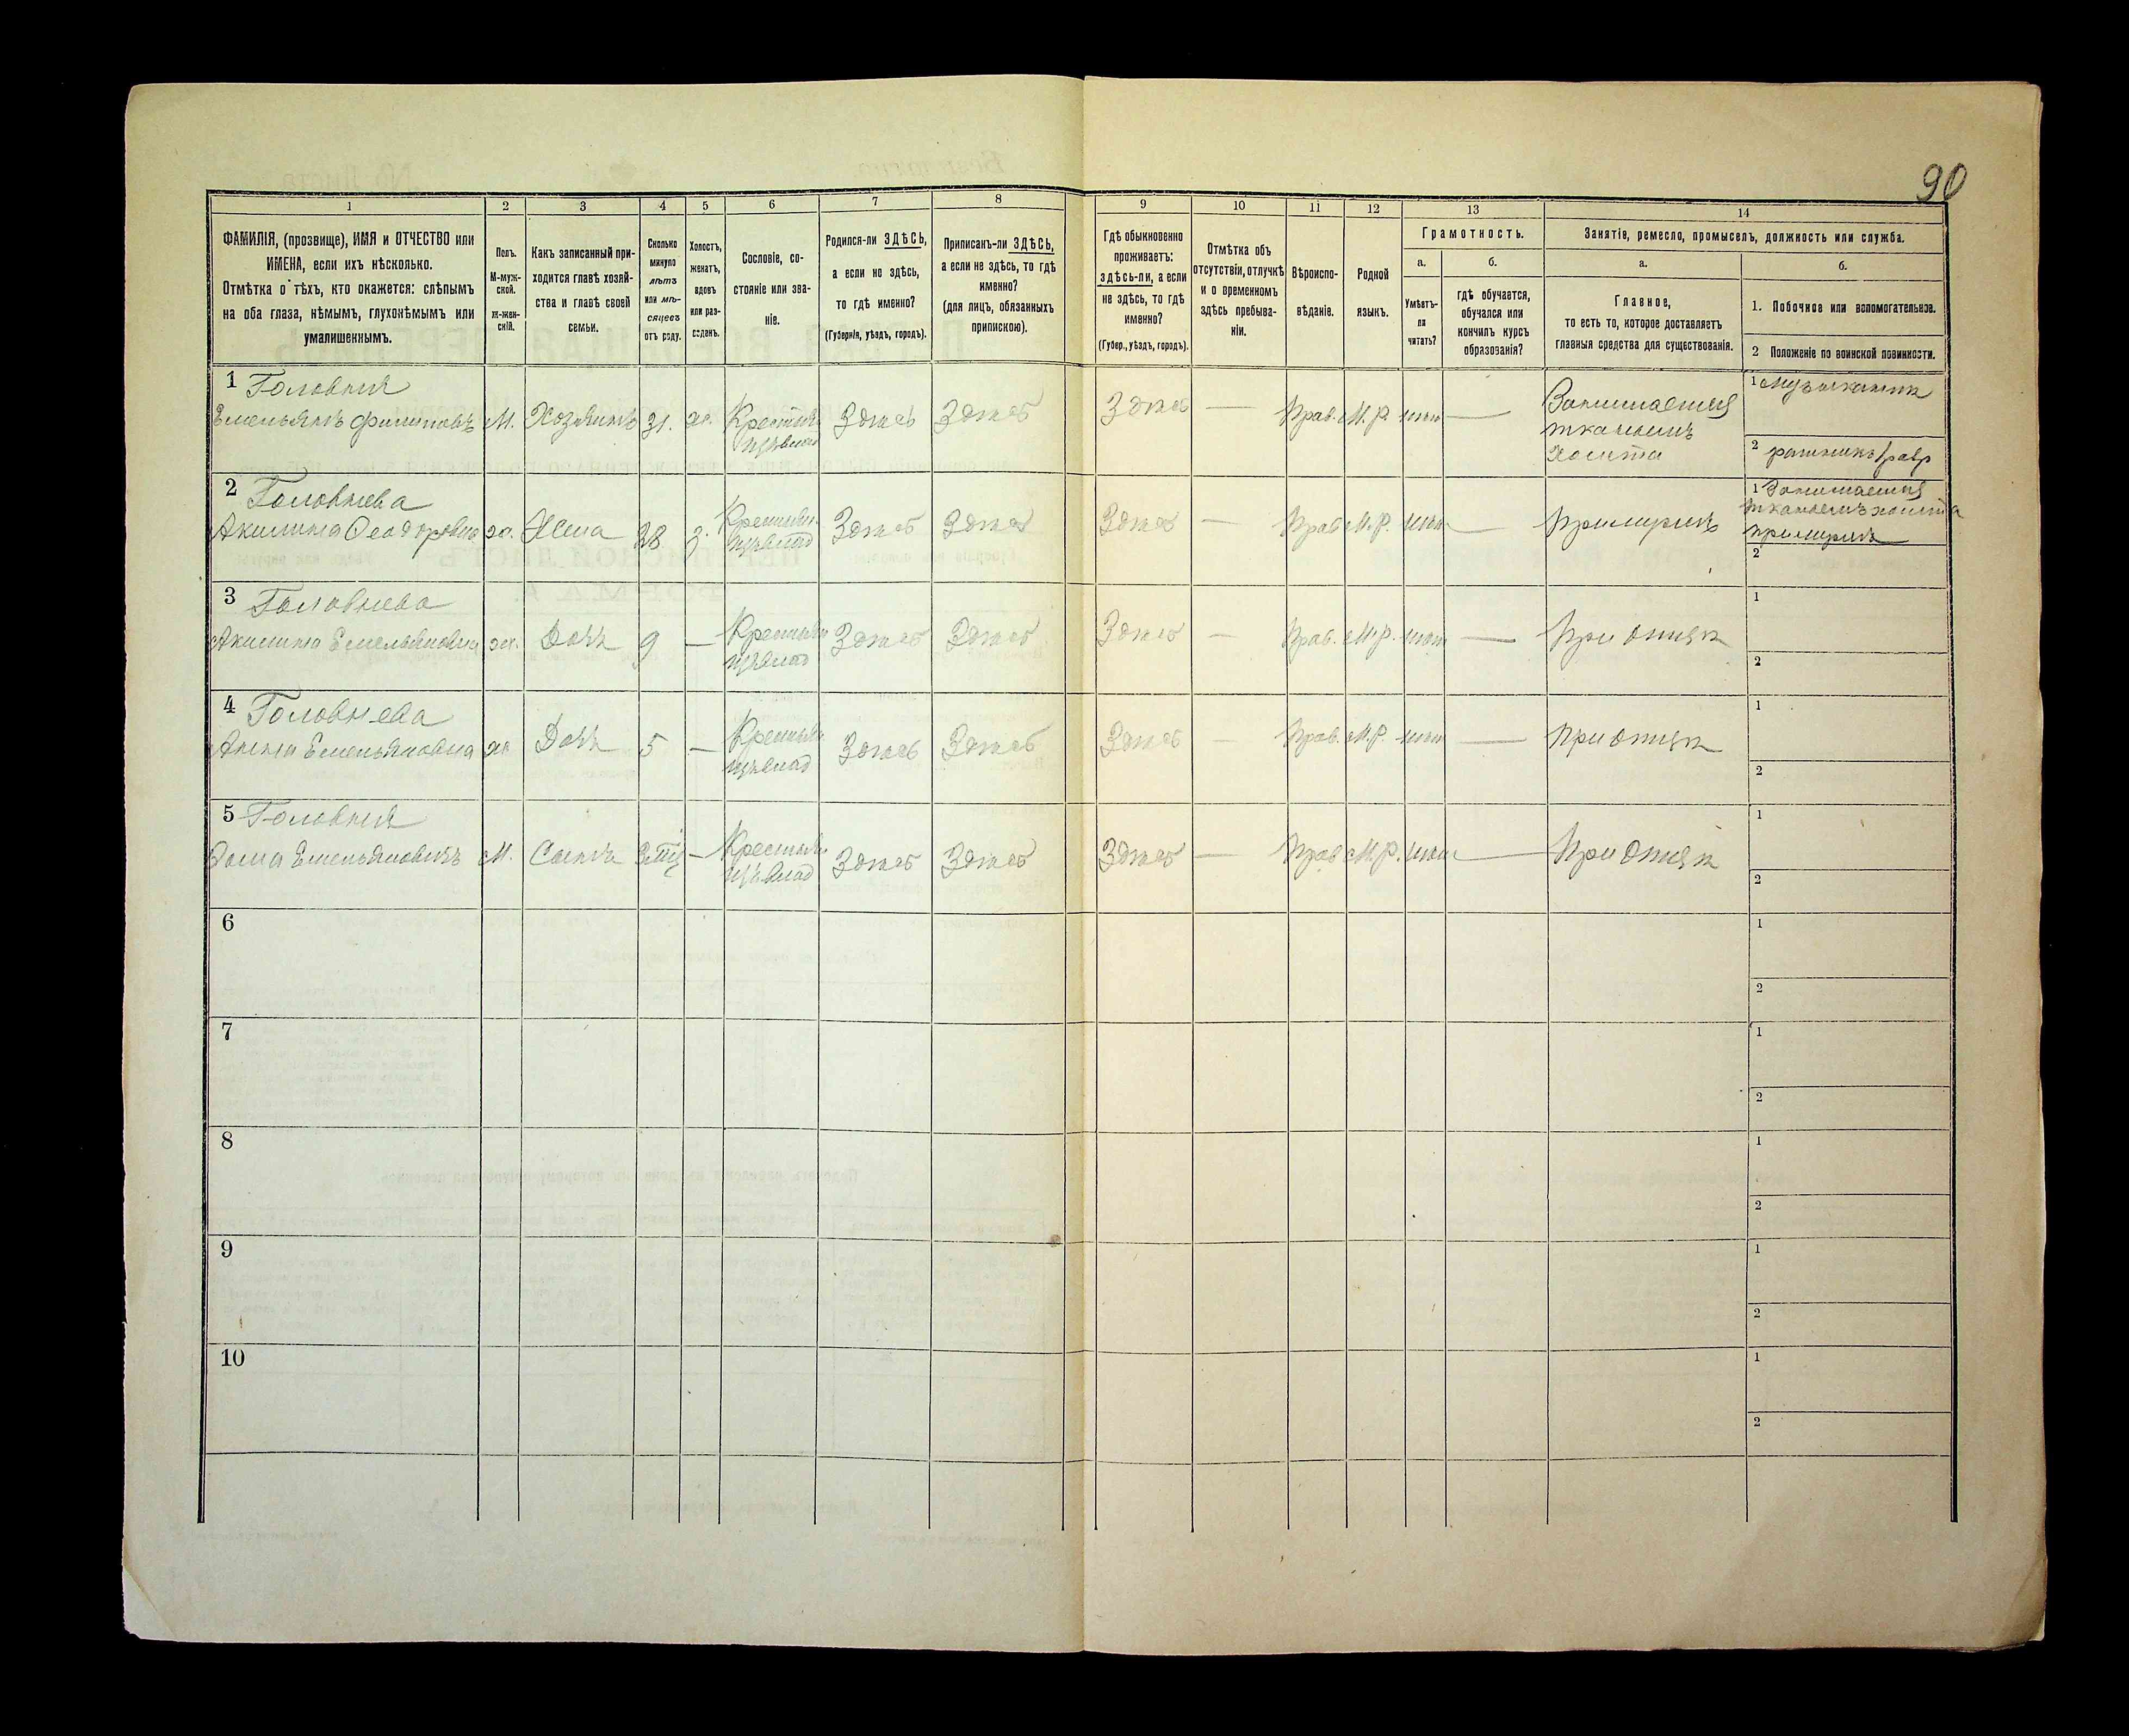 90
1 2 3 4 5 6 7 8 9 10 11 12 13 14
ФАМИЛІЯ, (прозвище), ИМЯ и ОТЧЕСТВО или
ИМЕНА, если ихъ нѣсколько.
Отмѣтка о тѣхъ, кто окажется: слѣпымъ
на оба глаза, нѣмымъ, глухонѣмымъ или
умалишеннымъ.
Полъ.
М-муж-
ской.
Ж-жен-
скій.
Какъ записанный при-
ходится главѣ хозяй-
ства и главѣ своей
семьи.
Сколько
минуло
лѣтъ
или мѣ-
сяцевъ
отъ роду.
Холостъ,
женатъ,
вдовъ
или раз-
веденъ.
Сословіе, со-
стояніе или зва-
ніе.
Родился-ли ЗДѢСЬ,
а если не здѣсь,
то гдѣ именно?
(Губернія, уѣздъ, городъ).
Приписанъ-ли ЗДѢСЬ,
а если не здѣсь, то гдѣ
именно?
(для лицъ, обязанныхъ
припискою).
Гдѣ обыкновенно
проживаетъ:
здѣсь-ли, а если
не здѣсь, то гдѣ
именно?
(Губер., уѣздъ, городъ).
Отмѣтка объ
отсутствіи, отлучкѣ
и о временномъ
здѣсь пребыва-
ніи.
Вѣроиспо-
вѣданіе.
Родной
языкъ.
Грамотность.
а.
Умѣетъ-
ли
читать?
б.
гдѣ обучается,
обучался или
кончилъ курсъ
образованія?
Занятіе, ремесло, промыселъ, должность или служба.
а.
Главное,
то есть то, которое доставляетъ
главныя средства для существованія.
б.
1. Побочное или вспомогательное.
2 Положеніе по воинской повинности.
1 Головня
Емельянъ Филиповъ М. Хозяинъ 31. Здѣсь Здѣсь Здѣсь — Прав. М.Р. — Занимается
тканьемъ
холста
1
2
2 Головнева
Акилина Ѳеодоровна ж. Жена 28 Здѣсь Здѣсь Здѣсь — Прав М.Р. —
1 Занимается
тканьемъ холста
2
3 Головнева
Акилина Емельяновна ж. Дочь 9 — Здѣсь Здѣсь Здѣсь — Прав. М.Р. — При отцѣ
1
2
4 Головнева
Емельяновна ж Дочь 5 — Здѣсь Здѣсь Здѣсь — Прав. М.Р. — При отцѣ
1
2
5 Головня
Емельяновичъ М. Сынъ — Здѣсь Здѣсь Здѣсь — Прав М.Р. — При отцѣ
1
2
6
1
2
7
1
2
8
1
2
9
1
2
10
1
2